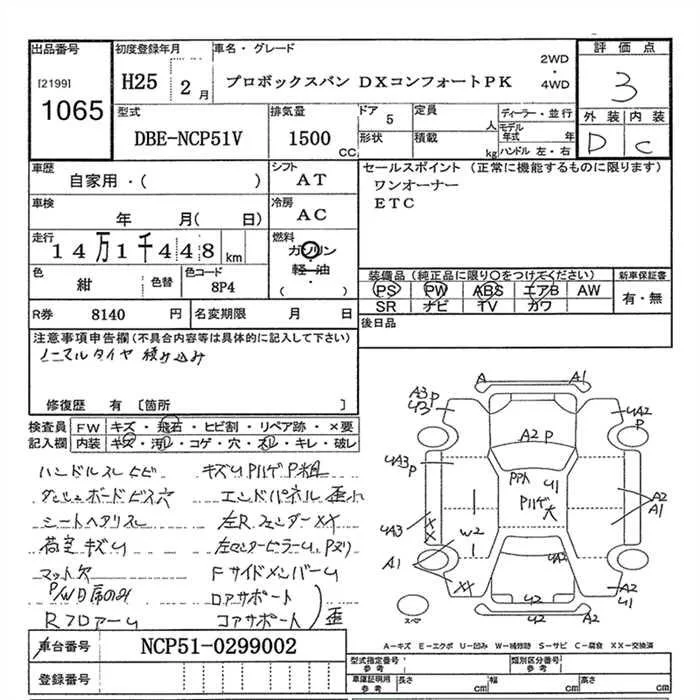 出品番号 初度登録年月 車名・グレード 評価点
[2199] 1065
H25 2月 プロボックスバン DXコンフォートPK 2WD・4WD 3
型式 排気量 ドア 5 定員 人 ディーラー・並行 外装 内装
DBE-NCP51V 1500 CC 形状 積載 kg モデル年式 年 ハンドル 左・右 D C
車歴 シフト セールスポイント (正常に機能するものに限ります)
自家用・( ) AT ワンオーナー
車検 冷房 ETC
年 月( 日) AC
走行 燃料
14万1千448 km ガソリン・軽油 ( )
色 紺 色替 色コード 8P4
装備品(純正品に限り○をつけてください) 新車保証書
PS PW ABS エアB AW 有・無
SR ナビ TV カワ
R券 8140 円 名変期限 月 日 後日品
注意事項申告欄(不具合内容等は具体的に記入して下さい)
ノーマルタイヤ積み込み
修復歴 有 〔箇所 〕
検査員 FW キズ・飛石・ヒビ割・リペア跡・×要
記入欄 内装 キズ・汚レ・コゲ・穴・スレ・キレ・破レ
ハンドルスレ ヒビ キズU Pハゲ P粗
ダッシュボードビス穴 エンドパネル歪小
シートヘタリスレ 左Rフェンダー XX
荷室キズU 左センターピラーU、Pスリ
マット欠 FサイドメンバーU
P/W D席のみ コアサポート
RフロアーU コアサポート 歪
A A1
A3 P U3
UA2 P
A2 P
UA3 P
PP大
U1
Pハゲ 大
A2 A1
UA3
XX
W2
A1
XX
UA2
A2 U1
U2
U2 A2
スペア
A-キズ E-エクボ U-凹み W-補修跡 S-サビ C-腐食 XX-交換済
車台番号 NCP51-0299002
登録番号
型式指定番号 参考 類別区分番号 参考
車庫証明用 参考 長さ cm 幅 cm 高さ cm